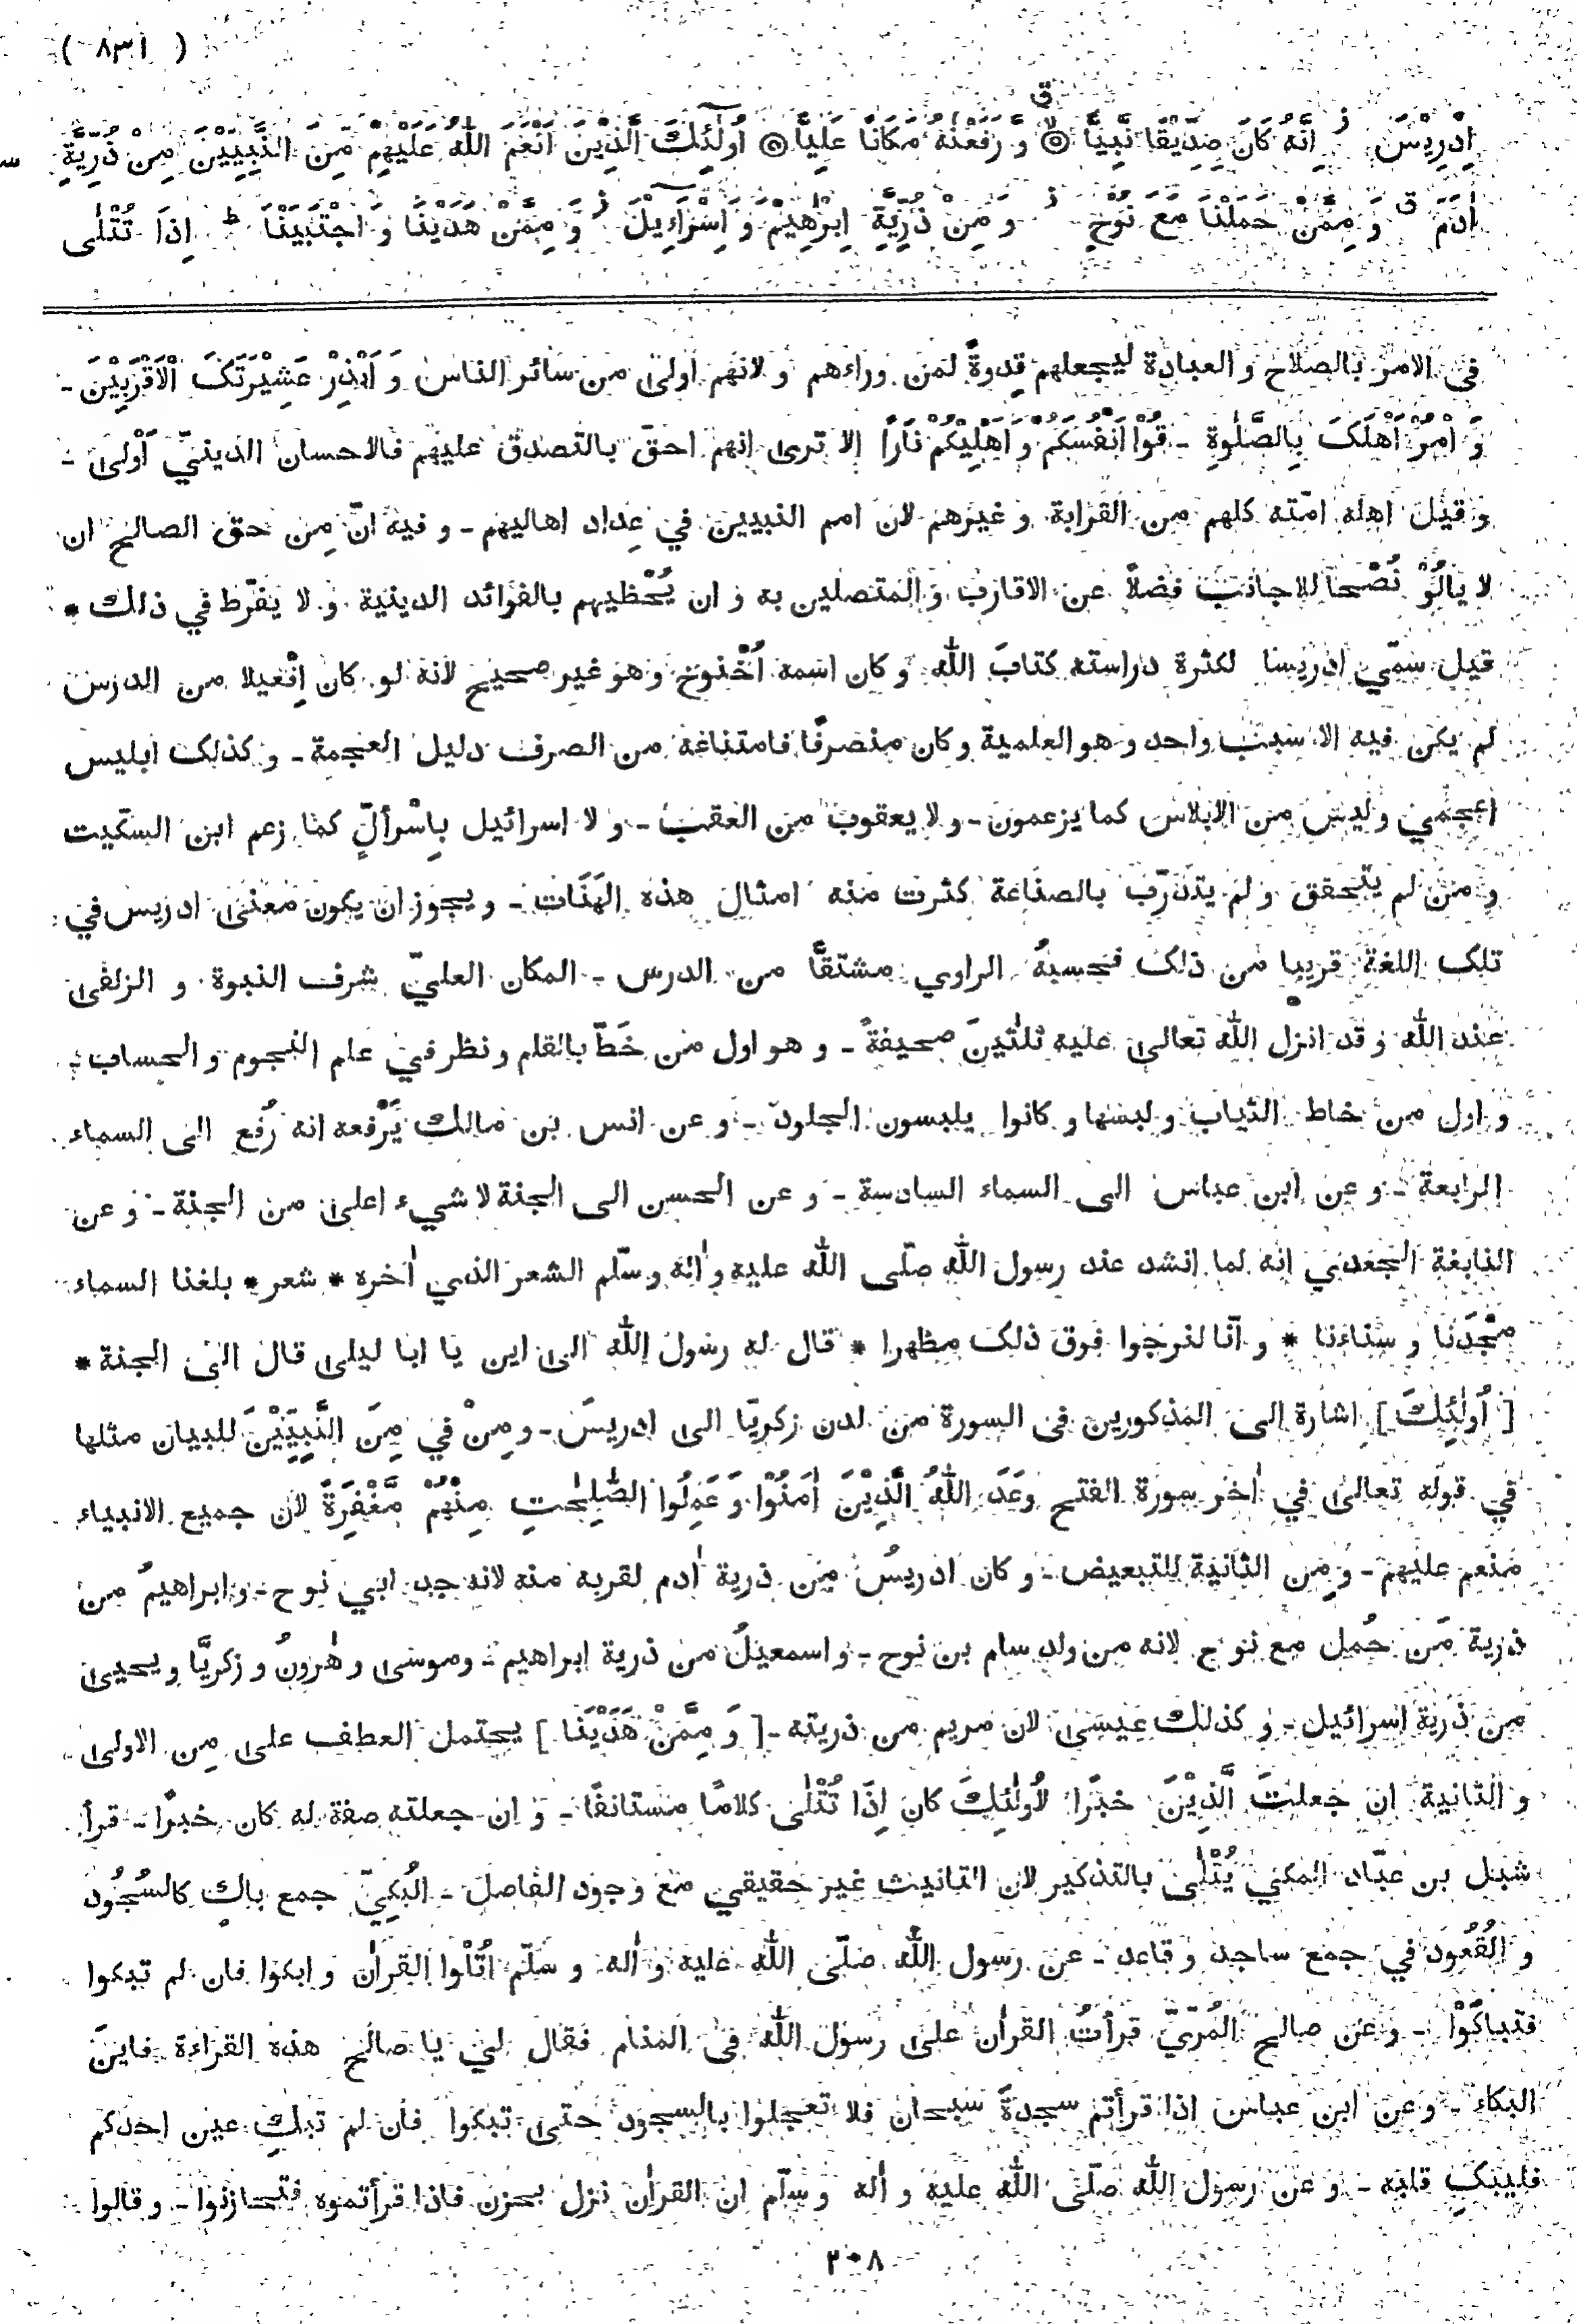 ( ٨٣١ )
اِدْرِيْسَ ز اِنَّهُ كَانَ صِدِّيْقًا نَّبِيًّا ۞ لا ق وَّ رَفَعْنٰهُ مَكَانًا عَلِيًّا ۞ اُولٰٓئِكَ الَّذِيْنَ اَنْعَمَ اللّٰهُ عَلَيْهِمْ مِّنَ النَّبِيّٖنَ مِنْ ذُرِّيَّةِ
اٰدَمَ ق وَ مِمَّنْ حَمَلْنَا مَعَ نُوْحٍ ز وَ مِنْ ذُرِّيَّةِ اِبْرٰهِيْمَ وَ اِسْرَآءِيْلَ ز وَ مِمَّنْ هَدَيْنَا وَ اجْتَبَيْنَا ط اِذَا تُتْلٰى
فى الامر بالصلاح و العبادة ليجعلهم قدوةً لمن وراءهم و لانهم اولىٰ من سائر الناس وَ اَنْذِرْ عَشِيْرَتَكَ الْاَقْرَبِيْنَ -
وَ اْمُرْ اَهْلَكَ بِالصَّلٰوةِ - قُوْا اَنْفُسَكُمْ وَ اَهْلِيْكُمْ نَارًا الا ترىٰ انهم احقّ بالتصدق عليهم فالاحسان الدينيّ اَوْلىٰ -
و قيل اهله امّته كلهم من القرابة و غيرهم لان امم النبيين في عِداد اهاليهم - و فيه انّ مِن حق الصالح ان
لا يألُوَ نُصْحا للاجانب فضلاً عن الاقارب و المتصلين به و ان يُحْظيهم بالفوائد الدينية و لا يفرّط في ذلك *
قيل سمّي ادريسا لكثرة دراسته كتابَ اللّٰه و كان اسمه اُخْنوخ و هو غير صحيح لانه لو كان اِفْعيلا من الدرس
لم يكن فيه الا سبب واحد و هو العلمية و كان منصرفًا فامتناعه من الصرف دليل العجمة - و كذلك ابليس
اعجمي و ليس من الابلاس كما يزعمون - و لا يعقوب من العقب - و لا اسرائيل بِاِسْرَألٍ كما زعم ابن السكّيت
و من لم يتحقق و لم يتدرّب بالصناعة كثرت منه امثال هذه الهَنَات - و يجوز ان يكون معنىٰ ادريس في
تلك اللغة قريبا من ذلك فحسبهُ الراوي مشتقًّا من الدرس - المكان العليّ شرف النبوة و الزلفىٰ
عند اللّٰه و قد انزل اللّٰه تعالىٰ عليه ثلٰثين صحيفةً - و هو اول من خَطّ بالقلم و نظر في علم النجوم و الحساب :
و اول من خاط الثياب و لبسها و كانوا يلبسون الجلود - و عن انس بن مالك يَرْفعه انه رُفع الى السماء
الرابعة - و عن ابن عباس الى السماء السادسة - و عن الحسن الى الجنة لا شيء اعلىٰ من الجنة - و عن
النابغة الجعدي انه لما انشد عند رسول اللّٰه صلّى اللّٰه عليه و اٰله و سلّم الشعر الذي اٰخره * شعر * بلغنا السماء
مجْدَنا و سناءَنا * و انّا لنرجوا فوق ذلك مظهرا * قال له رسول اللّٰه الى اين يا ابا ليلى قال الى الجنة *
[ اُولٰئِكَ ] اشارة الى المذكورين فى السورة من لدن زكريّا الى ادريس - و مِنْ في مِنَ النَّبِيّيْنَ للبيان مثلها
في قوله تعالىٰ في اٰخر سورة الفتح وَعَدَ اللّٰهُ الَّذِيْنَ اٰمَنُوْا وَ عَمِلُوا الصّٰلِحٰتِ مِنْهُمْ مَّغْفِرَةً لان جميع الانبياء
منعم عليهم - و مِن الثانية للتبعيض - و كان ادريسُ مِن ذرية اٰدم لقربه منه لانه جد ابي نوح - و ابراهيمُ من
ذرية مَن حُمِل مع نوح لانه من ولد سام بن نوح - و اسمعيلُ من ذرية ابراهيم - وموسىٰ و هٰرونُ و زكريّا و يحيىٰ
من ذرية اسرائيل - و كذلك عِيسَىٰ لان مريم من ذريته - [ وَ مِمَّنْ هَدَيْنَا ] يحتمل العطف على مِن الاولىٰ
و الثانية ان جعلتَ الَّذِيْنَ خبرًا لاُولٰئِكَ كان اِذَا تُتْلٰى كلامًا مستانفًا - و ان جعلته صفة له كان خبرًا - قرأ
شبل بن عبّاد المكي يُتْلٰى بالتذكير لان التانيث غير حقيقي مع وجود الفاصل - البُكِيّ جمع باكٍ كالسُّجُود
و القُعُود في جمع ساجد و قاعد - عن رسول اللّٰه صلّى اللّٰه عليه و اٰله و سلّم اُتْلُوا القراٰن و ابكوا فان لم تبكوا
فتباكَوْا - و عن صالح المُرّيّ قرأتُ القراٰن علىٰ رسول اللّٰه فى المنام فقال لي يا صالح هذه القراءة فاين
البكاء - و عن ابن عباس اذا قرأتم سجدةَ سبحان فلا تعجلوا بالسجود حتى تبكوا فان لم تبكِ عين احدكم
فليبكِ قلبه - و عن رسول اللّٰه صلّى اللّٰه عليه و اٰله و سلّم ان القراٰن نزل بحزن فاذا قرأتموه فتحازنوا - و قالوا
٢٠٨